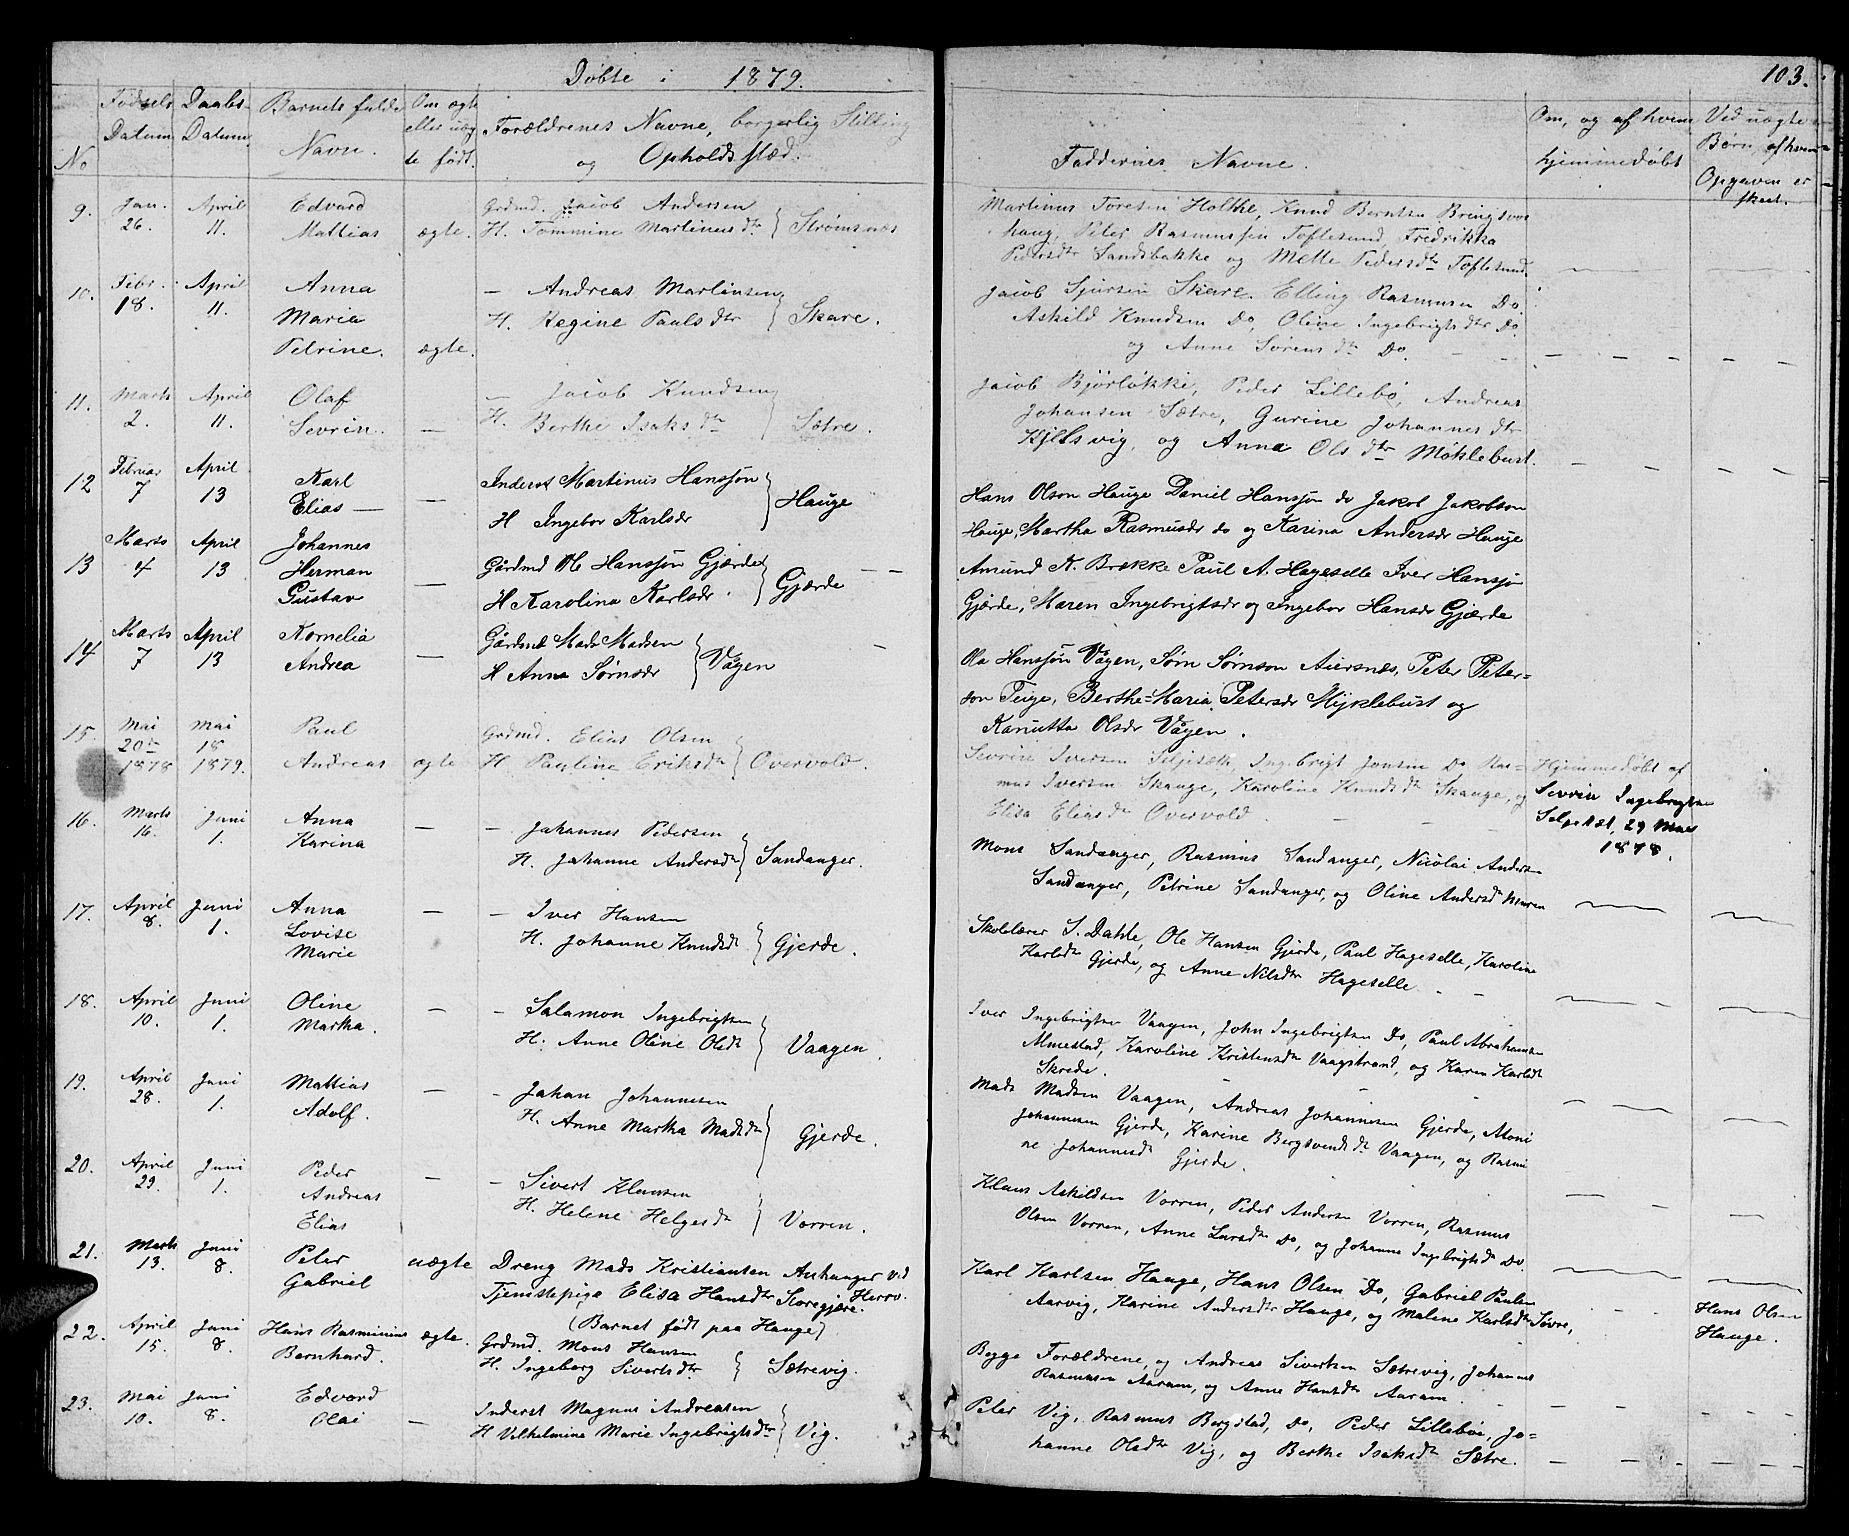 Døbte i 1879.
103.
No
Fødsels Datum
Daabs- Datum
Barnets fulde Navn.
Om ægte eller uæg te født.
Forældrenes Navne, borgerlig Stilling og Opholdssted.
Faddernes Navne.
Om, og af hvem hjemmedøbt
Ved uægte Børn, af hvem Opgaven er skeet.
9. Jan. 26. April 11. Edvard Mattias ægte.
Grdmd. Jacob Andersen
H. Tommine Martinusdtr } Strømsnes
Martinus Toresen Holthe, Knud Berntsen Bringsvor
haug, Peter Rasmussen Toftesund, Fredrikka
Pedersdtr Sandsbakke og Mette Pedersdtr Toftesund.
10. Febr. 18. April 11. Anna Maria Petrine. ægte.
— Andreas Martinsen
H. Regine Paulsdtr } Skare.
Jacob Sjursen Skare. Elling Rasmusen Do.
Askild Knudsen Do, Oline Ingebrigtsdtr Do
og Anne Sørensdtr Do.
11. Marts 2. April 11. Olaf Sevrin. —
— Jacob Knudsen
H. Berthe Isaksdtr } Sætre.
Jacob Bjørløkke, Peder Lillebø, Andreas
Johansen Sætre, Gurine Johannesdtr
Kjellsvig, og Anna Olsdtr Møklebust.
12 Februar 7 April 13 Karl Elias —
Inderst Martinus Hanssøn
H Ingebor Karlsdr } Hauge
Hans Olson Hauge Daniel Hanssøn do Jakob Jakobson
Hauge, Martha Rasmusdr do og Karina Andersdr Hauge
13 Marts 4 April 13 Johannes Herman Gustav —
Gårdmd Ole Hanssøn Gjærde
H Karolina Karlsdr. } Gjærde
Amund K. Brække Paul A. Hageselle Iver Hanssøn
Gjærde, Maren Ingebrigtsdr og Ingebor Hansdr Gjærde
14 Marts 7 April 13 Kornelia Andrea —
Gårdmd Mads Madsen
H Anna Sørnsdr } Vågen
Ola Hanssøn Vågen, Sørn Sørnson Aursnes, Peter Peter=
son Teige, Berthe=Maria Petersdr Myklebust og
Olsdr Vågen.
15. Mai 20de 1878 Mai 18 1879. Paul Andreas ægte
Grdmd. Elias Olsen
H. Pauline Eriksdtr } Overvold.
Sevrin Iversen Seljesæth, Ingebrigt Jonsen Do Ras=
mus Iversen Skauge, Karoline Knudsdtr Skauge, og
Elisa Eliasdtr Overvold.
Hjemmedøbt af
Sevrin Ingebrigtsen
29 Mai
1878.
16. Marts 16. Juni 1. Anna Karina —
— Johannes Pedersen
H. Johanne Andersdtr } Sandanger.
Mons Sandanger, Rasmus Sandanger, Nicolai Andersen
Sandanger, Petrine Sandanger, og Oline Andersdtr Moren
17. April 8. Juni 1. Anna Lovise Marie —
— Iver Hansen
H. Johanne Knudsdt } Gjerde.
Skolelærer S. Dahle, Ole Hansen Gjerde, Paul Hageselle, Karoline
Karlsdtr Gjerde, og Anne Nilsdtr Hageselle
18. April 10. Juni 1. Oline Martha. —
— Salamon Ingebrigtsen
H. Anne Oline Olsdt } Vaagen.
Iver Ingebrigtsen Vaagen, John Ingebrigtsen Do, Paul Abrahamsen
Almestad, Karoline Kristensdtr Vaagstrand, og Karen Karlsdt
Skrede.
19. April 28. Juni 1. Mattias Adolf. —
— Johan Johannesen
H. Anne Martha Madsdtr } Gjerde.
Mads Madsen Vaagen, Andreas Johannesen Gjerde, Moni
Johannesen Gjerde, Karine Bergsvendsdtr Vaagen, og Rasmi
ne Johannesdt Gjerde.
20. April 29. Juni 1. Peder Andreas Elias —
— Sivert Klausen
H. Helene Helgesdtr } Vorren.
Klaus Askildsen Vorren, Peder Andersen Vorren, Rasmus
Olsen Vorren, Anne Larsdtr Do, og Johanne Ingebrigtsdtr Do.
21. Marts 13. Juni 8. Peter Gabriel uægte
Dreng Mads Kristiansen Anhaager ved
Tjenistepige Elisa Hansdtr Storegjære. Herrø.
(Barnet født paa Hauge)
Karl Karlsen Hauge, Hans Olsen Do, Gabriel Paulsen
Aarvig, Karine Andersdtr Hauge, og Malene Karlsdtr Tøvre,
Hans Olsen
Hauge.
22. April 15. Juni 8. Hans Rasminius Bernhard. ægte.
Grdmd. Mons Hansen
H. Ingeborg Sivertsdtr } Sætrevig.
Begge Forældrene, og Andreas Sivertsen Sætrevig, Johannes
Rasmusen Aaram, og Anne Hansdtr Aaram.
23. Mai 10. Juni 8. Edvard Olai —
Inderst Magnus Andreasen
H Vilhelmine Marie Ingebrigtsdtr } Vig.
Peter Vig, Rasmus Bergstad, Do, Peder Lillebøe, Jo=
hanne Olsdtr Vig, og Berthe Isaksdtr Sætre.